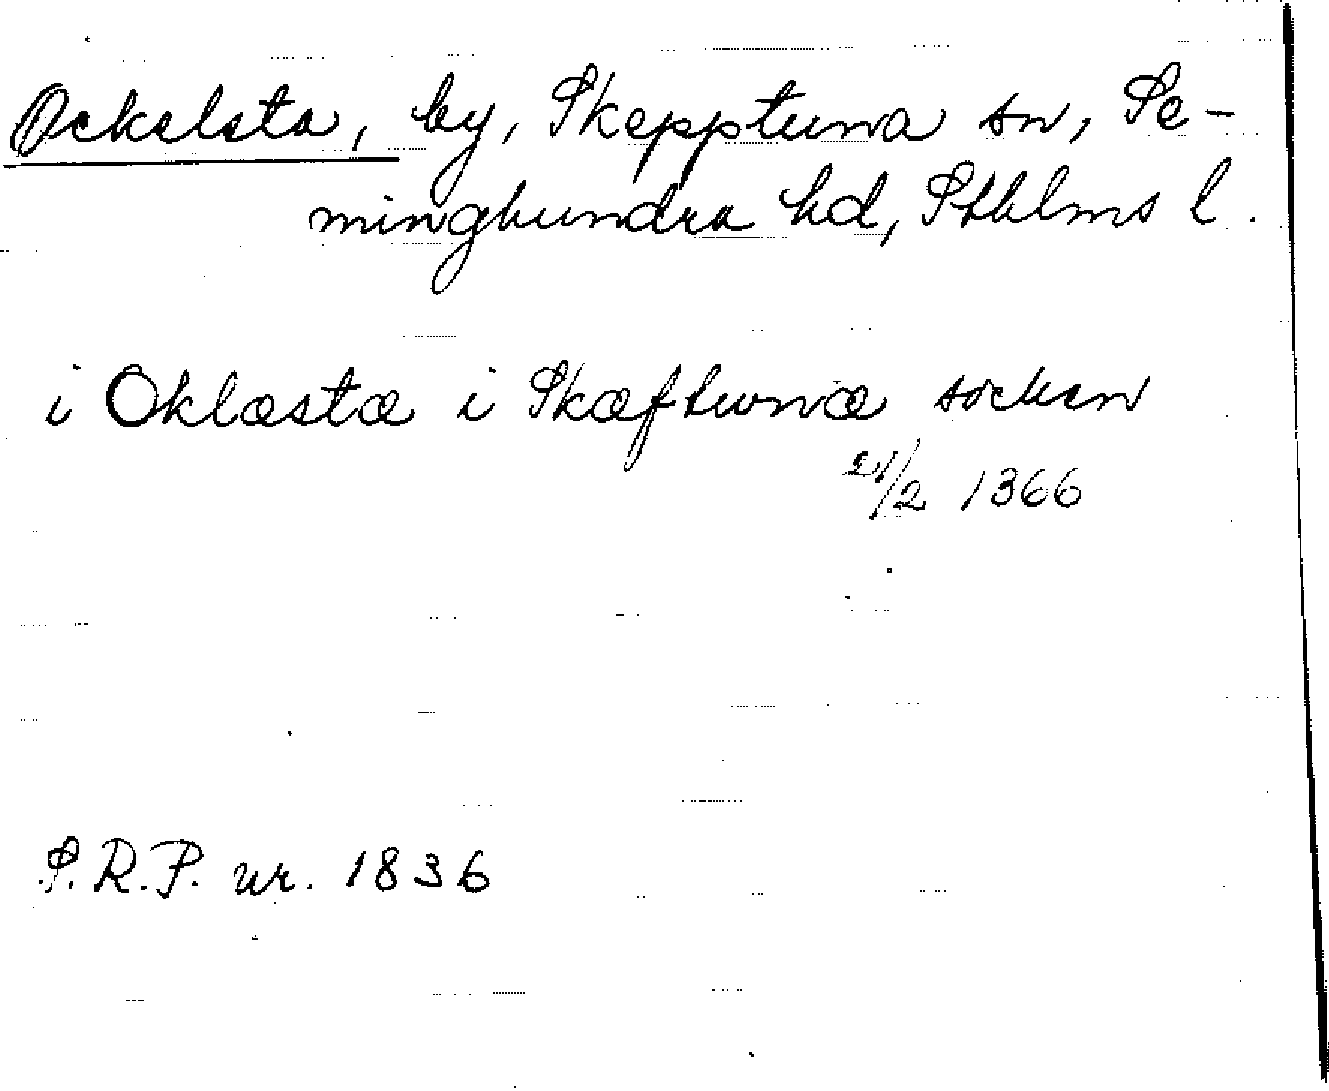 Ockelsta, by, Skepptuna sn, Se-
minghundra hd, Sthlms l.
i Oklæstæ i Skæftunæ sochen
21/2 1366
S.R.P. nr. 1836